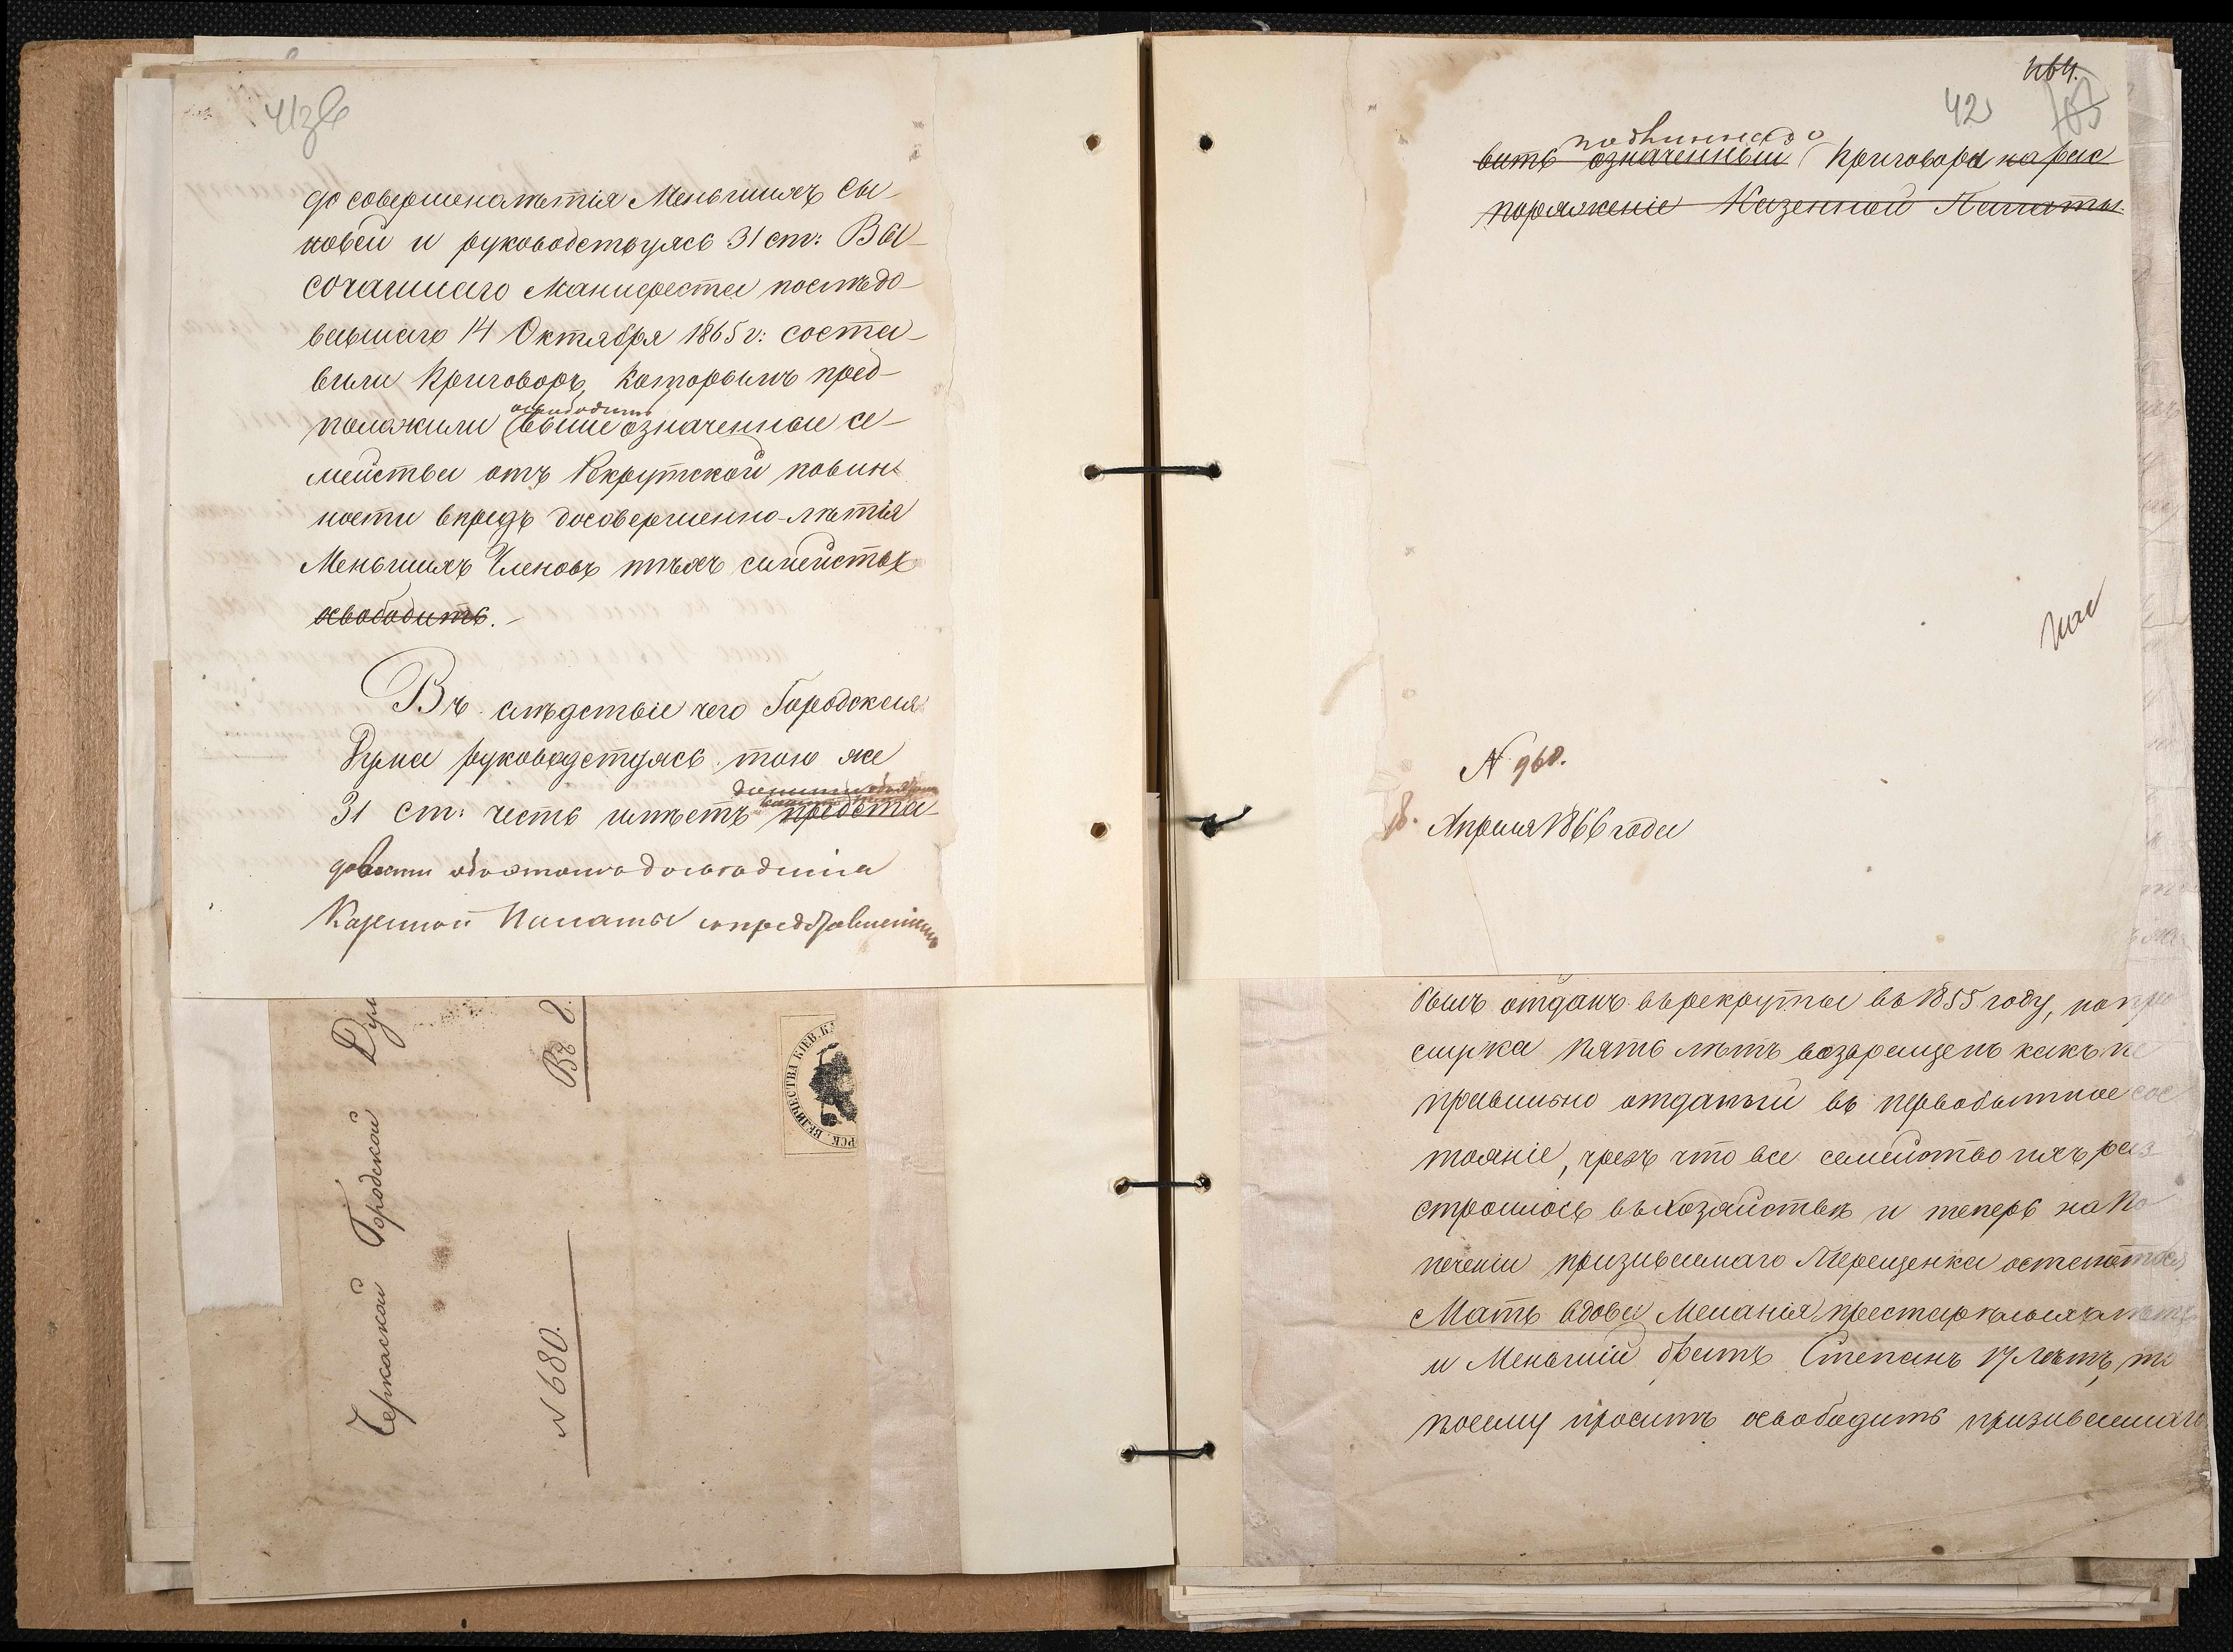 до совершеналѣтія Меньшихъ сы-
новей и руководствуясь 31 ст: Вы-
сочайшаго Манифеста послѣдо-
вавшаго 14 Октября 1865 г: соста-
вили Приговоръ, которымъ пред-
освободить
положили вышеозначенные се-
мейства отъ Рекрутской повин-
ности впредь досовершенно-лѣтія
Меньшихъ Членовъ тѣхъ семействъ
освободить.-
Въ слѣдствіе чего Городская
Дума руководстуясь тою же
31 ст: честь имѣетъ предста-
довести обэтомъ до свѣденія
Казенной Палаты съ представленіемъ
164.
42
подлиннаго
вить означенный Приговора на рас
поряженіе Казенной Палаты.
N 960.
18. Апреля 1866 года
былъ отданъ въ рекруты въ 1855 году, по
служа пять лѣтъ возвращенъ какъ не
правильно отданый въ первобытное сос
тояніе, чрезъ что все семейство ихъ раз
строилось въ хозяйствѣ и теперь на по
печеніи призиваемаго Терещенка остаются
Мать вдова Меланія престарѣлыхъ лѣтъ
и Меньшій братъ Степанъ 17 лѣтъ, по
поему проситъ освободить призиваемаго
Черкаской Городской Дум
N 680.
Въ 2.
РСК. ВЕЛИЧЕСТВА КІЕВ. КА